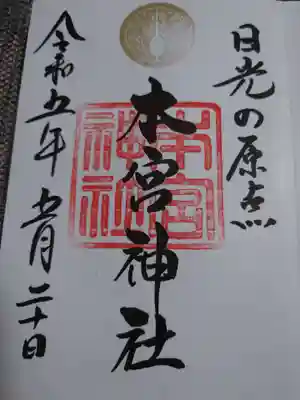 日光の原点
本宮神社
本宮神社
令和五年 五月二十日